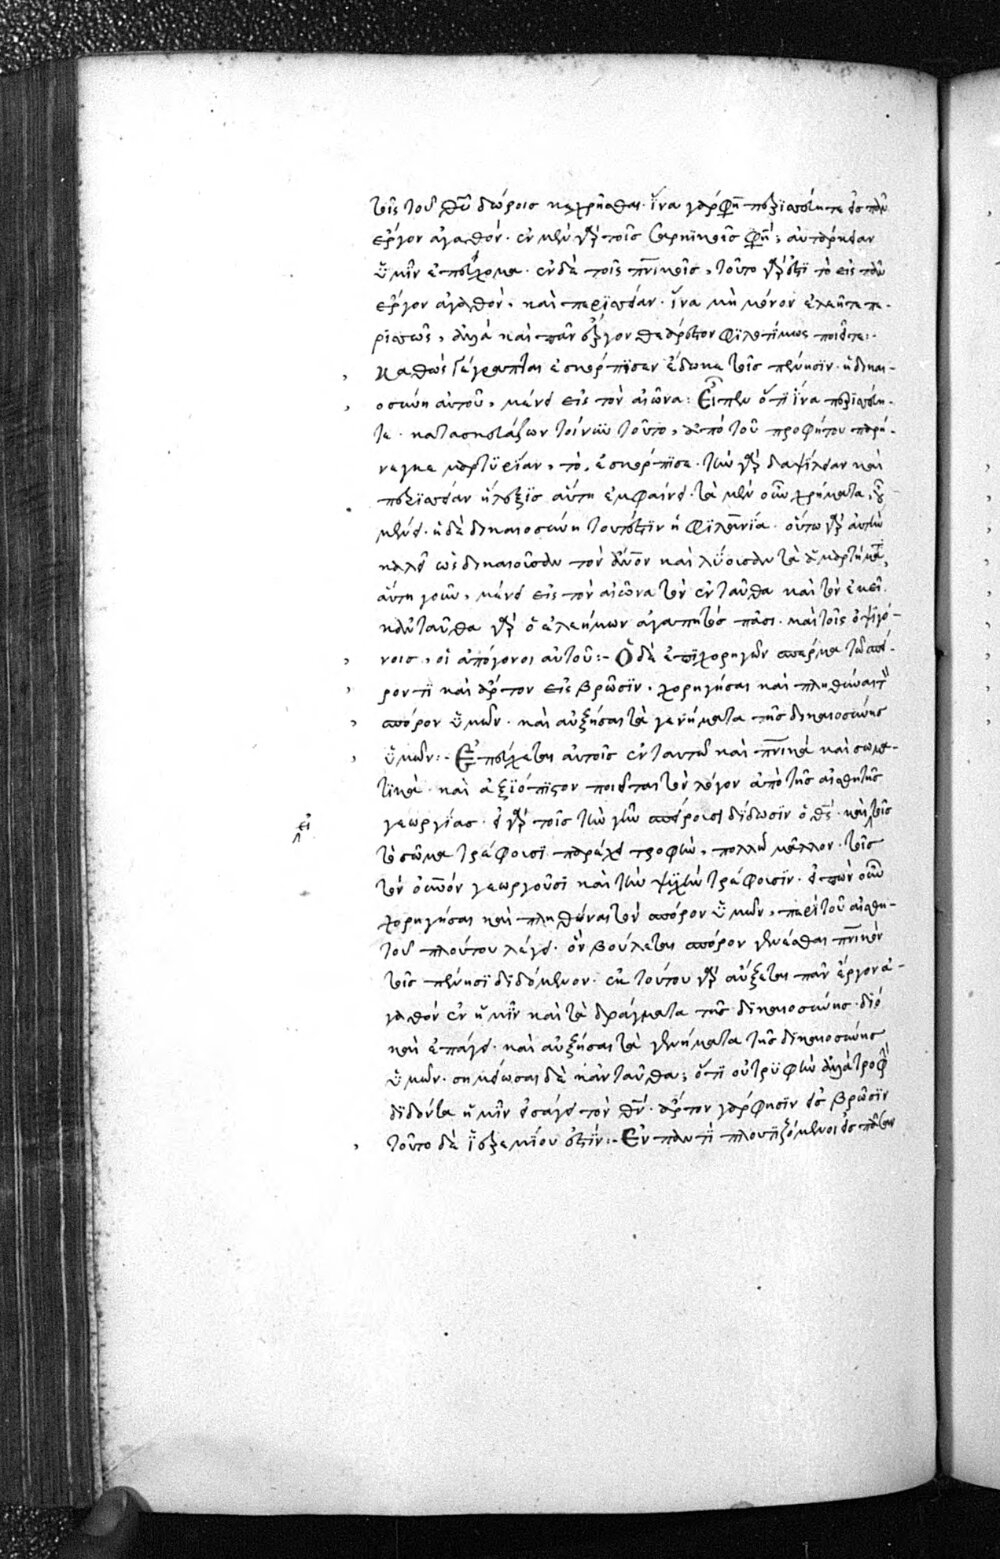 τοῖς τοῦ θῦ δώροις κεχρῆσθαι· ἵνα γάρ φη περισσεύητε εἰς πᾶν
ἔργον ἀγαθόν· ἐν μὲν γὰρ τοῖς σαρκικοῖς φη, αὐτάρκειαν
ὑμῖν ἐπεύχομαι· ἐν δὲ τοῖς πνικοῖς, τοῦτο γάρ ἐστι τὸ εἰς πᾶν
ἔργον ἀγαθόν, καὶ περισσείαν· ἵνα μὴ μόνον ἐλεῆτε πε-
ρισσῶς, ἀλλὰ καὶ πᾶν ἔργον θεάρεστον φιλοτίμως ποιῆτε:
Καθὼς γέγραπται ἐσκόρπισεν ἔδωκε τοῖς πένησιν· ἡ δικαι-
οσύνη αὐτοῦ, μένει εἰς τὸν αἰῶνα: Εἰπὼν ὅτι ἵνα περισσεύη-
τε· κατασκευάζων τοίνυν τοῦτο, ἀπὸ τοῦ προφήτου παρή-
νεγκε μαρτυρίαν, τό, ἐσκόρπισε· τὴν γὰρ δαψίλειαν καὶ
περισσείαν ἡ λέξις αὕτη ἐμφαίνει· τὰ μὲν οὖν χρήματα, οὐ
μένει· ἡ δὲ δικαιοσύνη τουτέστιν ἡ φιλανία· οὕτω γὰρ αὐτὴν
καλεῖ ὡς δικαιοῦσαν τὸν ἄνον καὶ λύουσαν τὰ ἁμαρτήματα,
αὕτη γοῦν, μένει εἰς τὸν αἰῶνα τὸν ἐνταῦθα καὶ τὸν ἐκεῖ·
κἀνταῦθα γὰρ ὁ ἐλεήμων ἀγαπητὸς πᾶσι· καὶ τοῖς ὀψιγό-
νοις, οἱ ἀπόγονοι αὐτοῦ:- Ὁ δὲ ἐπιχορηγῶν σπέρμα τῷ σπεί-
ροντι καὶ ἄρτον εἰς βρῶσιν· χορηγήσαι καὶ πληθύναι τὸν
σπόρον ὑμῶν· καὶ αὐξήσαι τὰ γενήματα τῆς δικαιοσύνης
ὑμῶν:- Ἐπεύχεται αὐτοῖς ἐνταυτῷ καὶ πνικὰ καὶ σωμα-
τικά· καὶ ἀξιόπιστον ποιεῖται τὸν λόγον ἀπὸ τῆς αἰσθητῆς
γεωργίας· εἰ γὰρ τοῖς τὴν γῆν σπείρουσι δίδωσιν ὁ θς· καὶ τοῖς
τὸ σῶμα τρέφουσι παρέχει τροφήν, πολλῷ μᾶλλον· τοῖς
τὸν οὐνὸν γεωργοῦσι καὶ τὴν ψυχὴν τρέφουσιν· εἰπὼν οὖν
χορηγήσαι καὶ πληθύναι τὸν σπόρον ὑμῶν, περὶ τοῦ αἰσθη-
τοῦ πλούτου λέγει· ὃν βούλεται σπόρον γενέσθαι πνικὸν
τοῖς πένησι διδόμενον· ἐκ τούτου γὰρ αὔξεται πᾶν ἔργον ἀ-
γαθὸν ἐν ἡμῖν καὶ τὰ δράγματα τῆς δικαιοσύνης· διό
καὶ ἐπάγει· καὶ αὐξήσαι τὰ γενήματα τῆς δικαιοσύνης
ὑμῶν· σημείωσαι δὲ κἀνταῦθα, ὅτι οὐ τρυφὴν ἀλλὰ τροφὴν
διδόντα ἡμῖν εἰσάγει τὸν θν· ἄρτον γάρ φησιν εἰς βρῶσιν
τοῦτο δὲ ἱερεμίου ἐστίν:- Ἐν παντὶ πλουτιζόμενοι εἰς πᾶσαν
εἰ